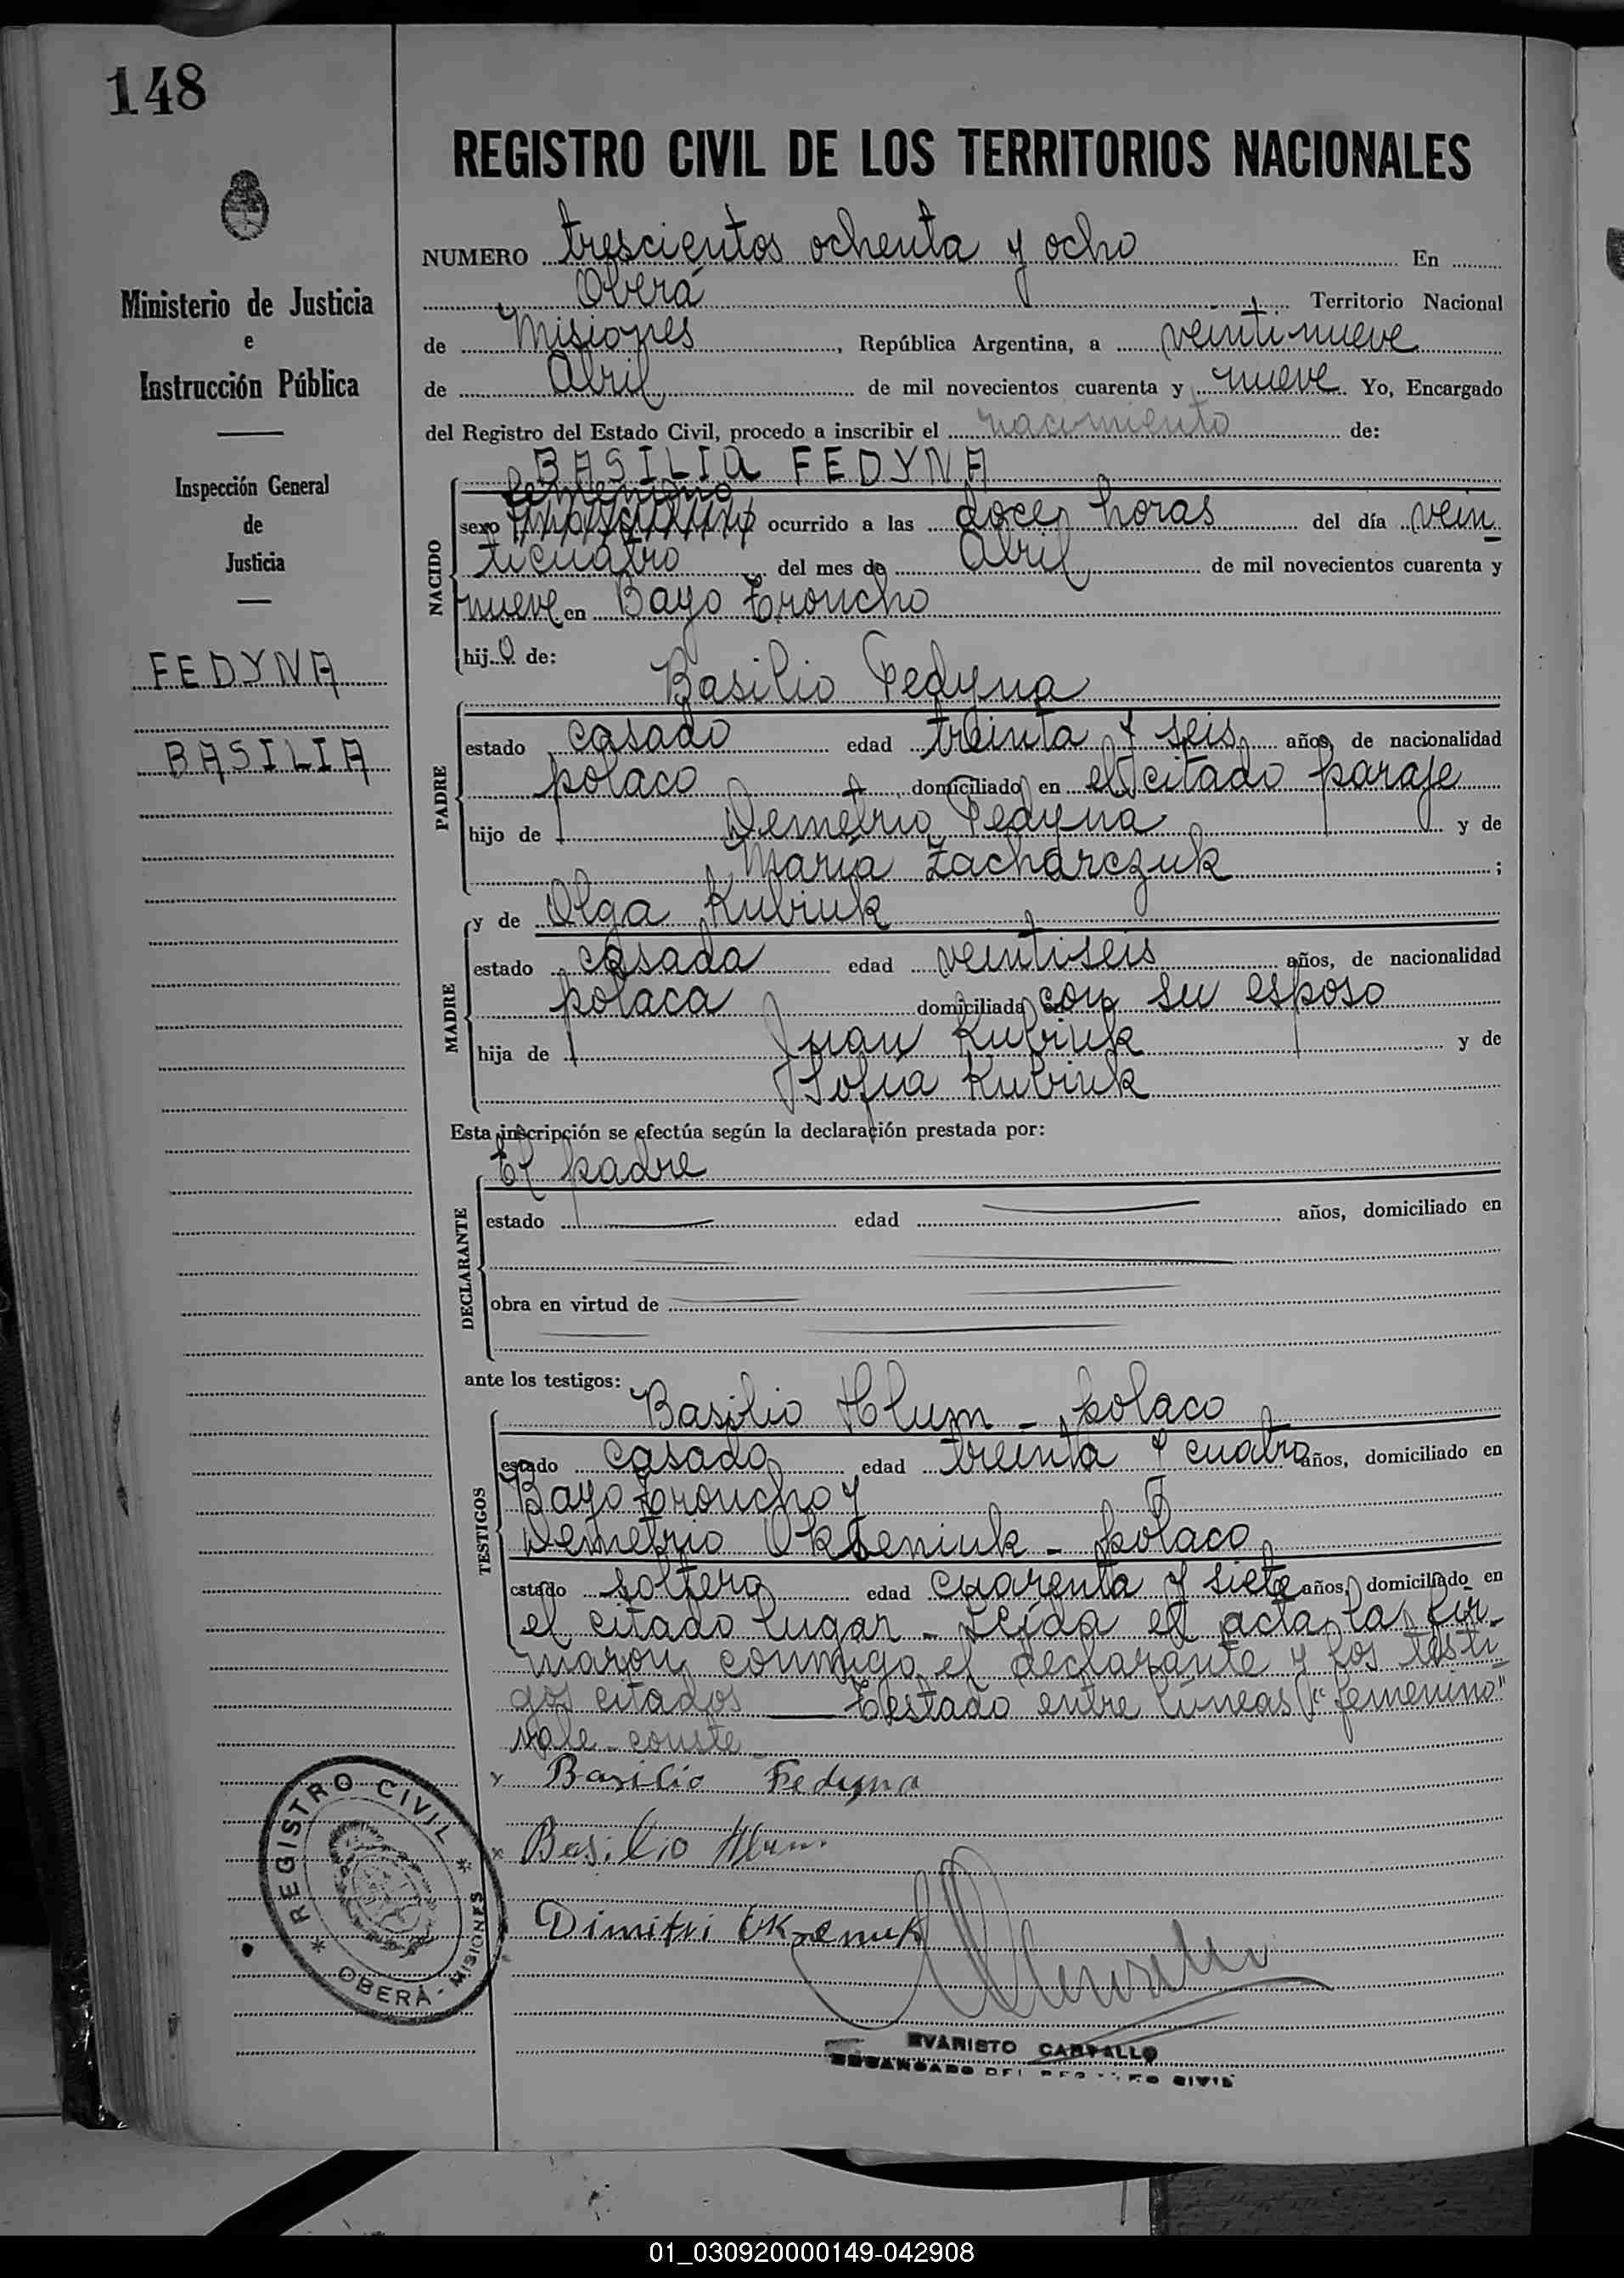 148
REGISTRO CIVIL DE LOS TERRITORIOS NACIONALES
NUMERO trescientos ochenta y ocho En
Oberá Territorio Nacional
de Misiones, República Argentina, a veintinueve
de Abril de mil novecientos cuarenta y nueve Yo, Encargado
del Registro del Estado Civil, procedo a inscribir el nacimiento de:
Ministerio de Justicia
e
Instrucción Pública
Inspección General
de
Justicia
FEDYNA
BASILIA
NACIDO
BASILIA FEDYNA
femenino
sexo masculino ocurrido a las doce horas del día vein
ticuatro del mes de Abril de mil novecientos cuarenta y
nueve en Bayo Troncho
hija de:
PADRE
Basilio Fedyna
estado casado edad treinta y seis años, de nacionalidad
polaco, domiciliado en el citado paraje
hijo de Demetrio Fedyna y de
María Zacharczuk;
MADRE
y de Olga Kubiuk
estado casada edad veintiseis años, de nacionalidad
polaca domiciliada con su esposo
hija de Juan Kubiuk y de
Sofía Kubiuk
Esta inscripción se efectúa según la declaración prestada por:
DECLARANTE
El padre
estado edad años, domiciliado en
obra en virtud de
ante los testigos:
TESTIGOS
Basilio Hlum - polaco
estado casado edad treinta y cuatro años, domiciliado en
Bayo Troncho y
Demetrio Okseniuk - polaco
estado soltero edad cuarenta y siete años, domiciliado en
el citado lugar - Leída el acta la fir-
maron conmigo el declarante y los testi
gos citados — Testado entre líneas "femenino"
vale - conste
x Basilio Fedyna
x Basilio Hlum
Dimitri
REGISTRO CIVIL
OBERÁ - MISIONES
EVARISTO CARVALLO
ENCARGADO DEL REGISTRO CIVIL
01_030920000149-042908